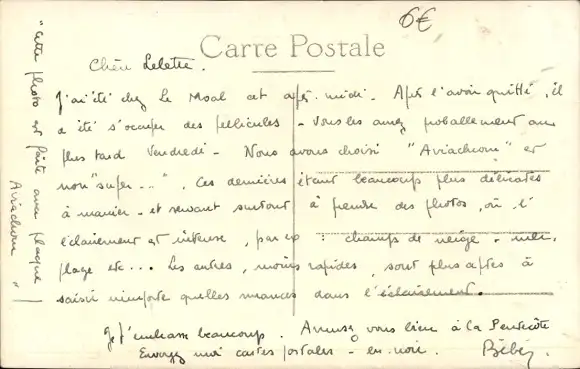 6€
Carte Postale
Chère Lolotte.
J'ai été chez Le Moal cet après-midi. Après l'avoir quitté, il
a été s'occuper des pellicules - Vous les aurez probablement au
plus tard Vendredi - Nous avons choisi "Aviachrom" et
non "super...". Ces dernières étant beaucoup plus délicates
à manier - et servant surtout à prendre des photos, où l'
éclairement est intense, par ex : champs de neige - mer,
plage etc... Les autres, moins rapides, sont plus aptes à
saisir n'importe quelles nuances dans l'éclairement.
Je t'embrasse beaucoup. Amusez vous bien à la Pentecôte
Envoyez moi cartes postales - en noir. Bébé.
"Cette photo est faite avec plaque
Aviachrom"